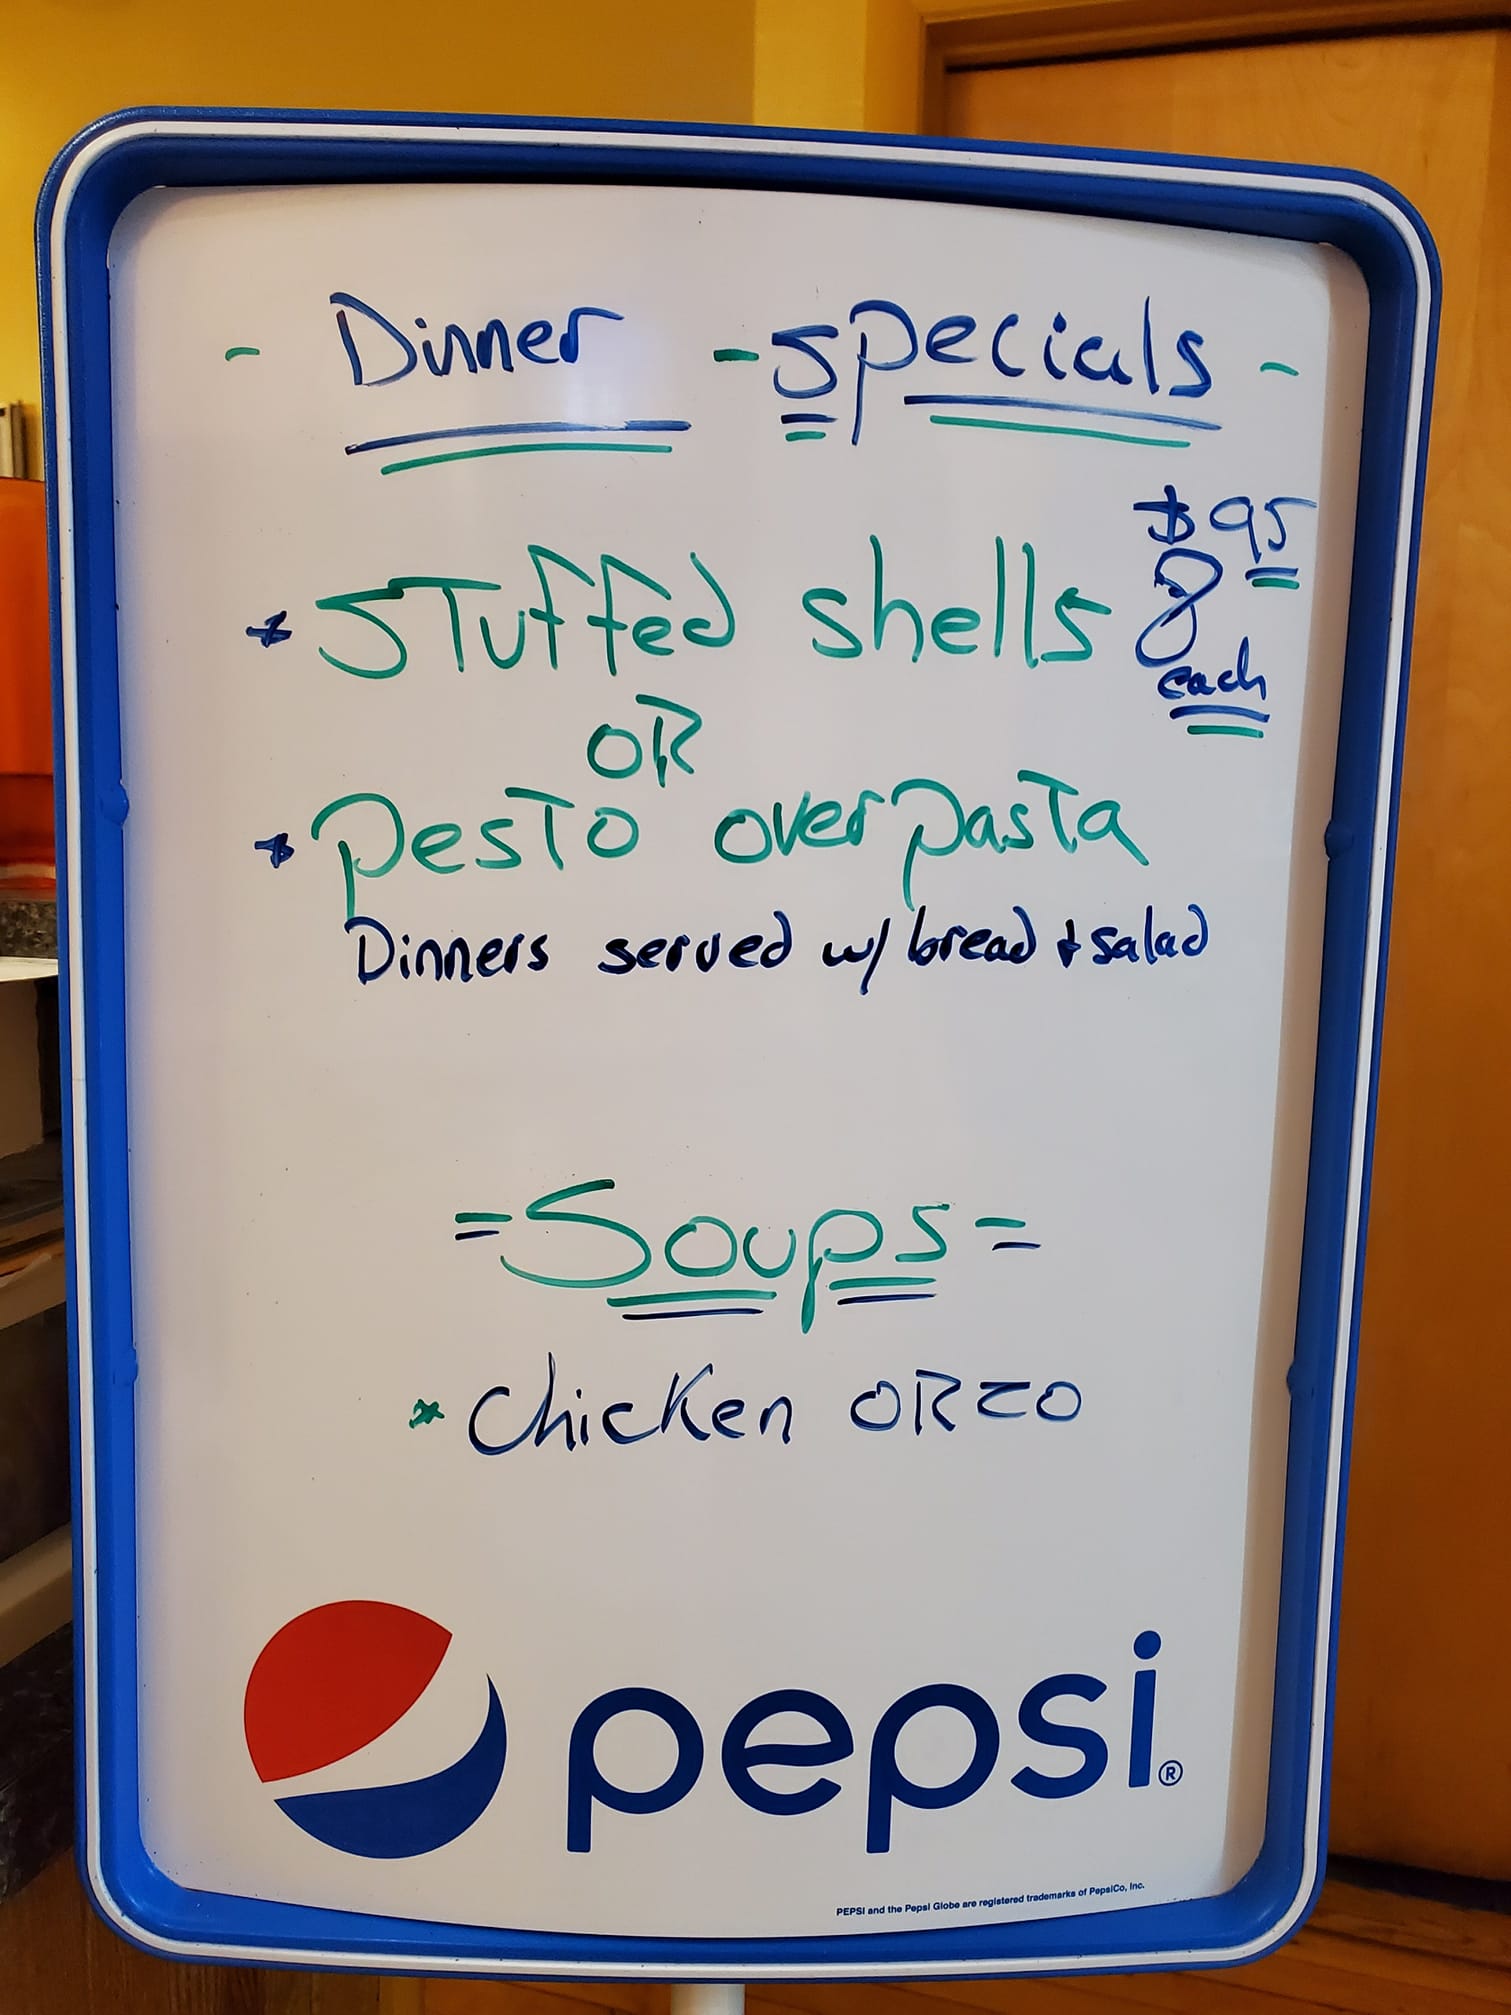 - Dinner - Specials -
* Stuffed shells $8.95 each
OR
* Pesto over pasta
Dinners served w/ bread + salad
= Soups =
* Chicken ORZO
pepsi®
PEPSI and the Pepsi Globe are registered trademarks of PepsiCo, Inc.